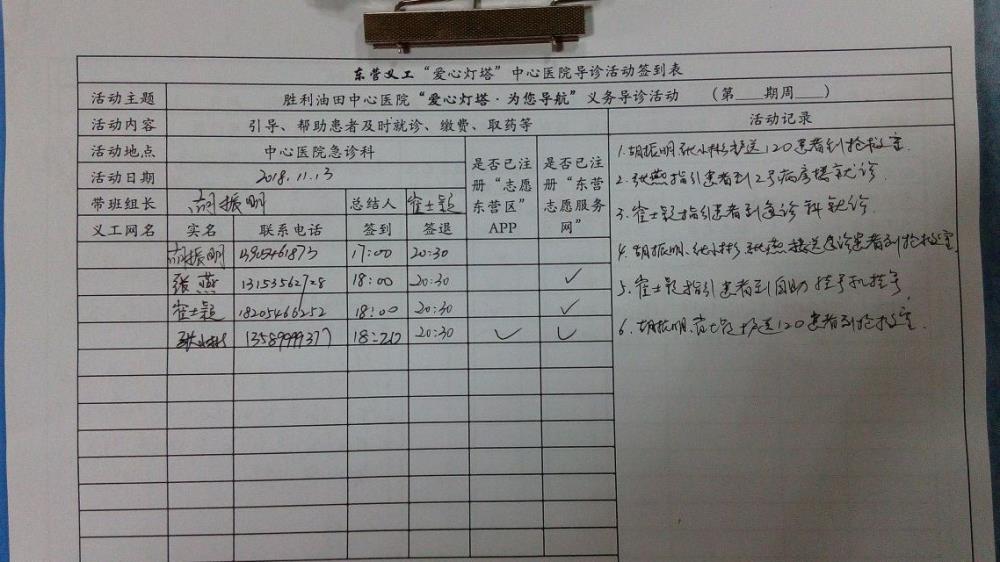 东营义工“爱心灯塔”中心医院导诊活动签到表
活动主题 胜利油田中心医院“爱心灯塔·为您导航”义务导诊活动 （第___期周___）
活动内容 引导、帮助患者及时就诊、缴费、取药等 活动记录
活动地点 中心医院急诊科 是否已注册“志愿东营区”APP 是否已注册“东营志愿服务网”
活动日期 2018.11.13
带班组长 胡振明 总结人 崔士题
义工网名 实名 联系电话 签到 签退
胡振明 17:00 20:30
张燕 13153562728 18:00 20:30 ✓
崔士题 18205466252 18:00 20:30 ✓
张小彬 13589999377 18:20 20:30 ✓ ✓
1.胡振明.张小彬护送120患者到抢救室.
2.张燕指引患者到2号病房楼就诊.
3.崔士题指引患者到急诊科就诊.
4.胡振明.张小彬.张燕接送急诊患者到抢救室.
5.崔士题指引患者到自助挂号机挂号
6.胡振明.崔士题护送120患者到抢救室.